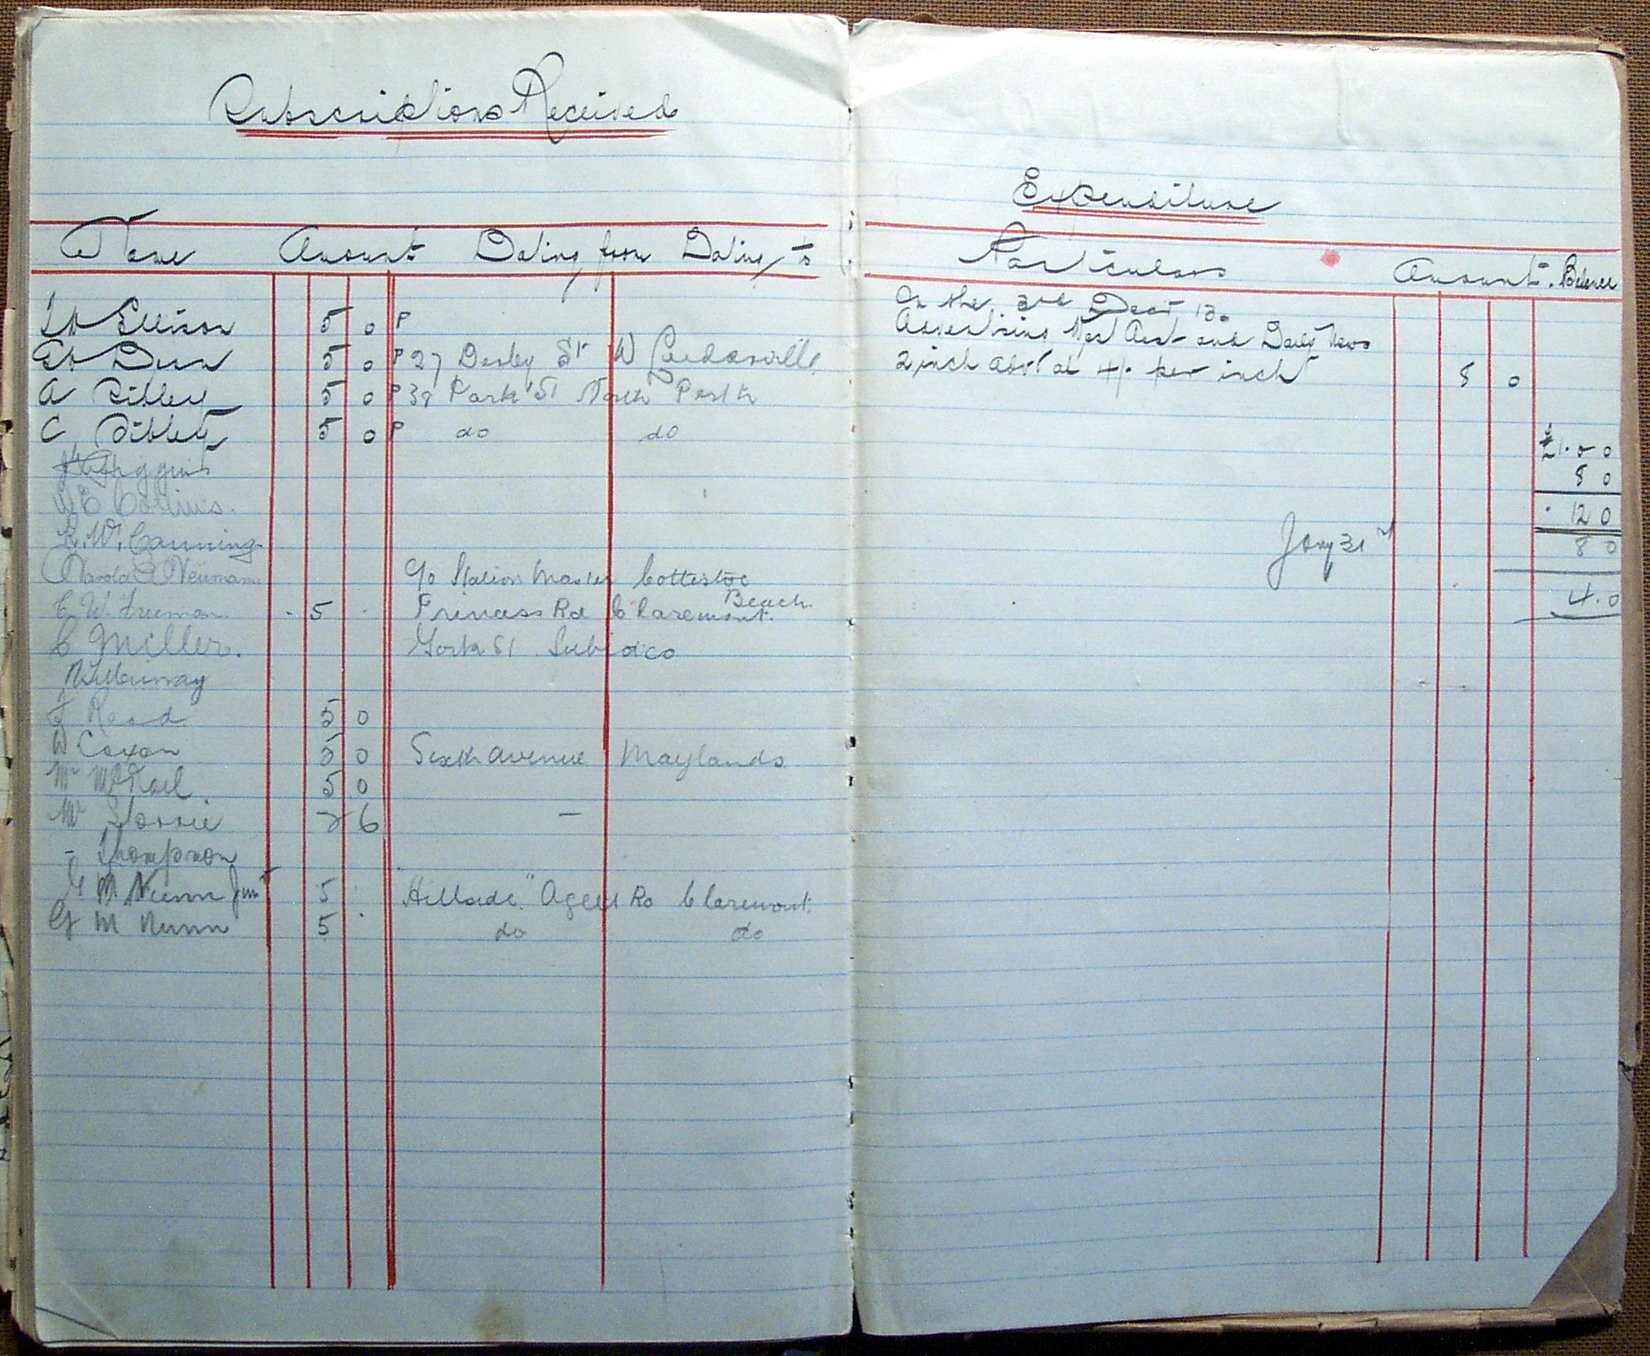 Subscriptions Received
Name Amount Dating from Dating to
Ellison 5 0 P
Dunn 5 0 P 27 Derby St W
A Sibley 5 0 P 38 Park St North Perth
C Sibley 5 0 P do do
Higgins
Collins.
R. W. Canning
Harold A Neumann c/o Station Master Cottesloe
Beach
C. W. Freeman 5 Princess Rd Claremont.
C Miller. York St Subiaco
Murray
F Read 5 0
W Coxon 5 0 Sixth Avenue Maylands
Mr 5 0
Mr 2 6 -
- Thompson
G M Nunn Junr 5 "Hillside" Agett Rd Claremont.
G M Nunn 5 do do
Expenditure
Particulars Amount. Balance
On the 3rd Dect 13.
Advertising West Aust and Daily News
2 inch advt at 4/- per inch 8 0
£1. 0 0
8 0
12 0
Jany 31st 8 0
4. 0